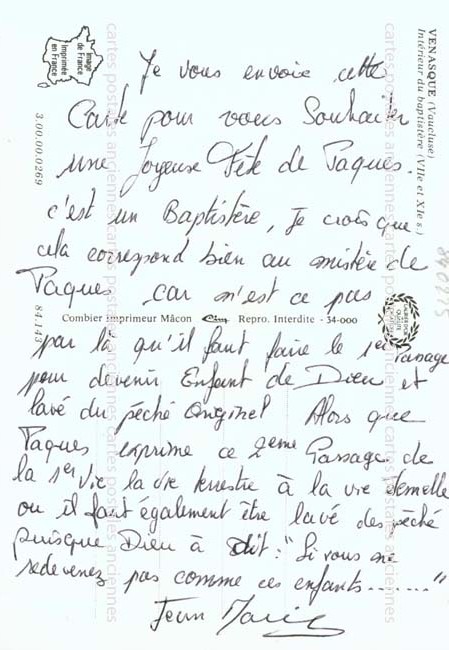 Je vous envoie cette
Carte pour vous Souhaiter
une Joyeuse Fête de Paques.
c'est un Baptistère, Je crois que
cela correspond bien au mistère de
Paques car n'est ce pas
par là qu'il faut faire le 1er Passage
pour devenir Enfant de Dieu et
lavé du péché Originel Alors que
Paques exprime ce 2eme Passage de
la 1er vie la vie terrestre à la vie éternelle
ou il faut également être lavé des péché
puisque Dieu à dit : "Si vous ne
redevenez pas comme ces enfants........"
Jean Marie
VENASQUE (Vaucluse)
Intérieur du baptistère (VIIe et XIe s.)
Image
de France
Imprimée
en France
3.00.00.0269
84.143
Combier imprimeur Mâcon Cim Repro. Interdite - 34-000
cartes postales anciennes cartes postales anciennes cartes postales anciennes
cartes postales anciennes cartes postales anciennes cartes postales anciennes